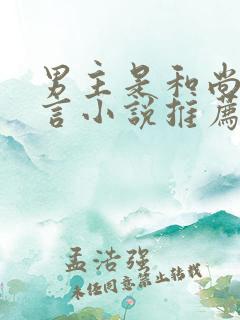 男主是和尚
言小说推荐
孟浩强
未经同意禁止转载